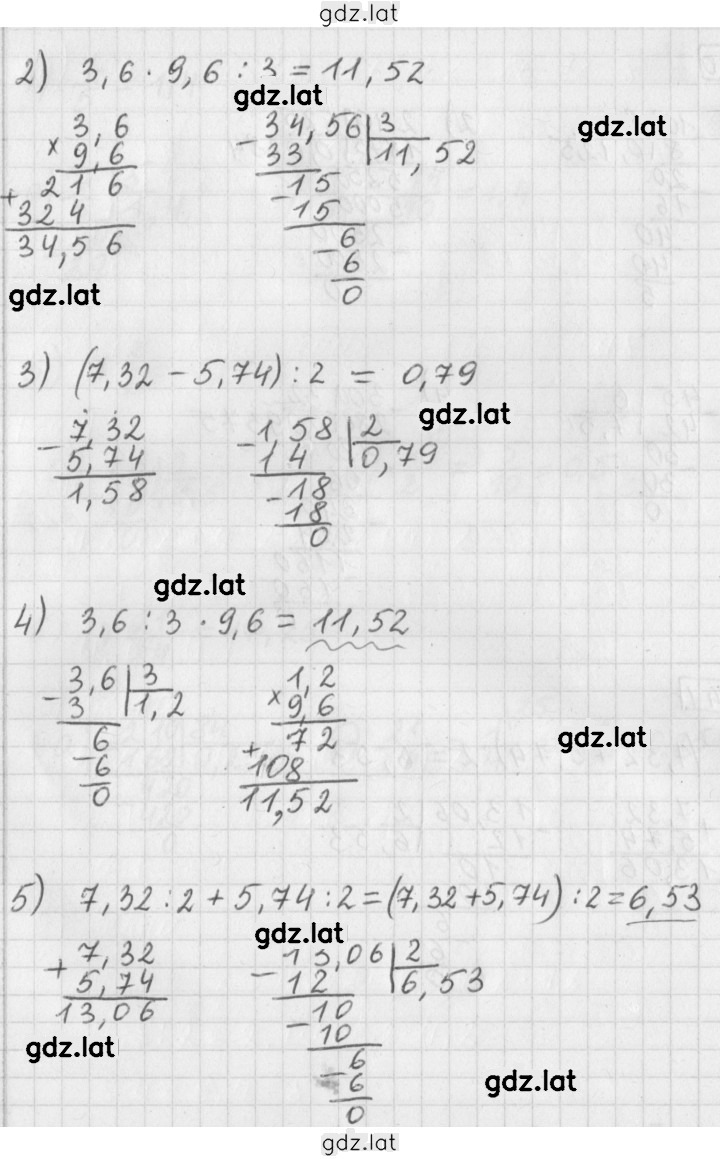 gdz.lat
2) 3,6 · 9,6 : 3 = 11,52
gdz.lat
gdz.lat
3,6
× 9,6
216
+ 324
34,56
- 34,56 | 3
33 11,52
- 15
15
- 6
6
0
gdz.lat
3) (7,32 - 5,74) : 2 = 0,79
gdz.lat
- 7,32
5,74
1,58
- 1,58 | 2
14 0,79
- 18
18
0
gdz.lat
4) 3,6 : 3 · 9,6 = 11,52
- 3,6 | 3
3 1,2
- 6
6
0
1,2
× 9,6
72
+ 108
11,52
gdz.lat
5) 7,32 : 2 + 5,74 : 2 = (7,32 + 5,74) : 2 = 6,53
gdz.lat
+ 7,32
5,74
13,06
- 13,06 | 2
12 6,53
- 10
10
- 6
6
0
gdz.lat
gdz.lat
gdz.lat